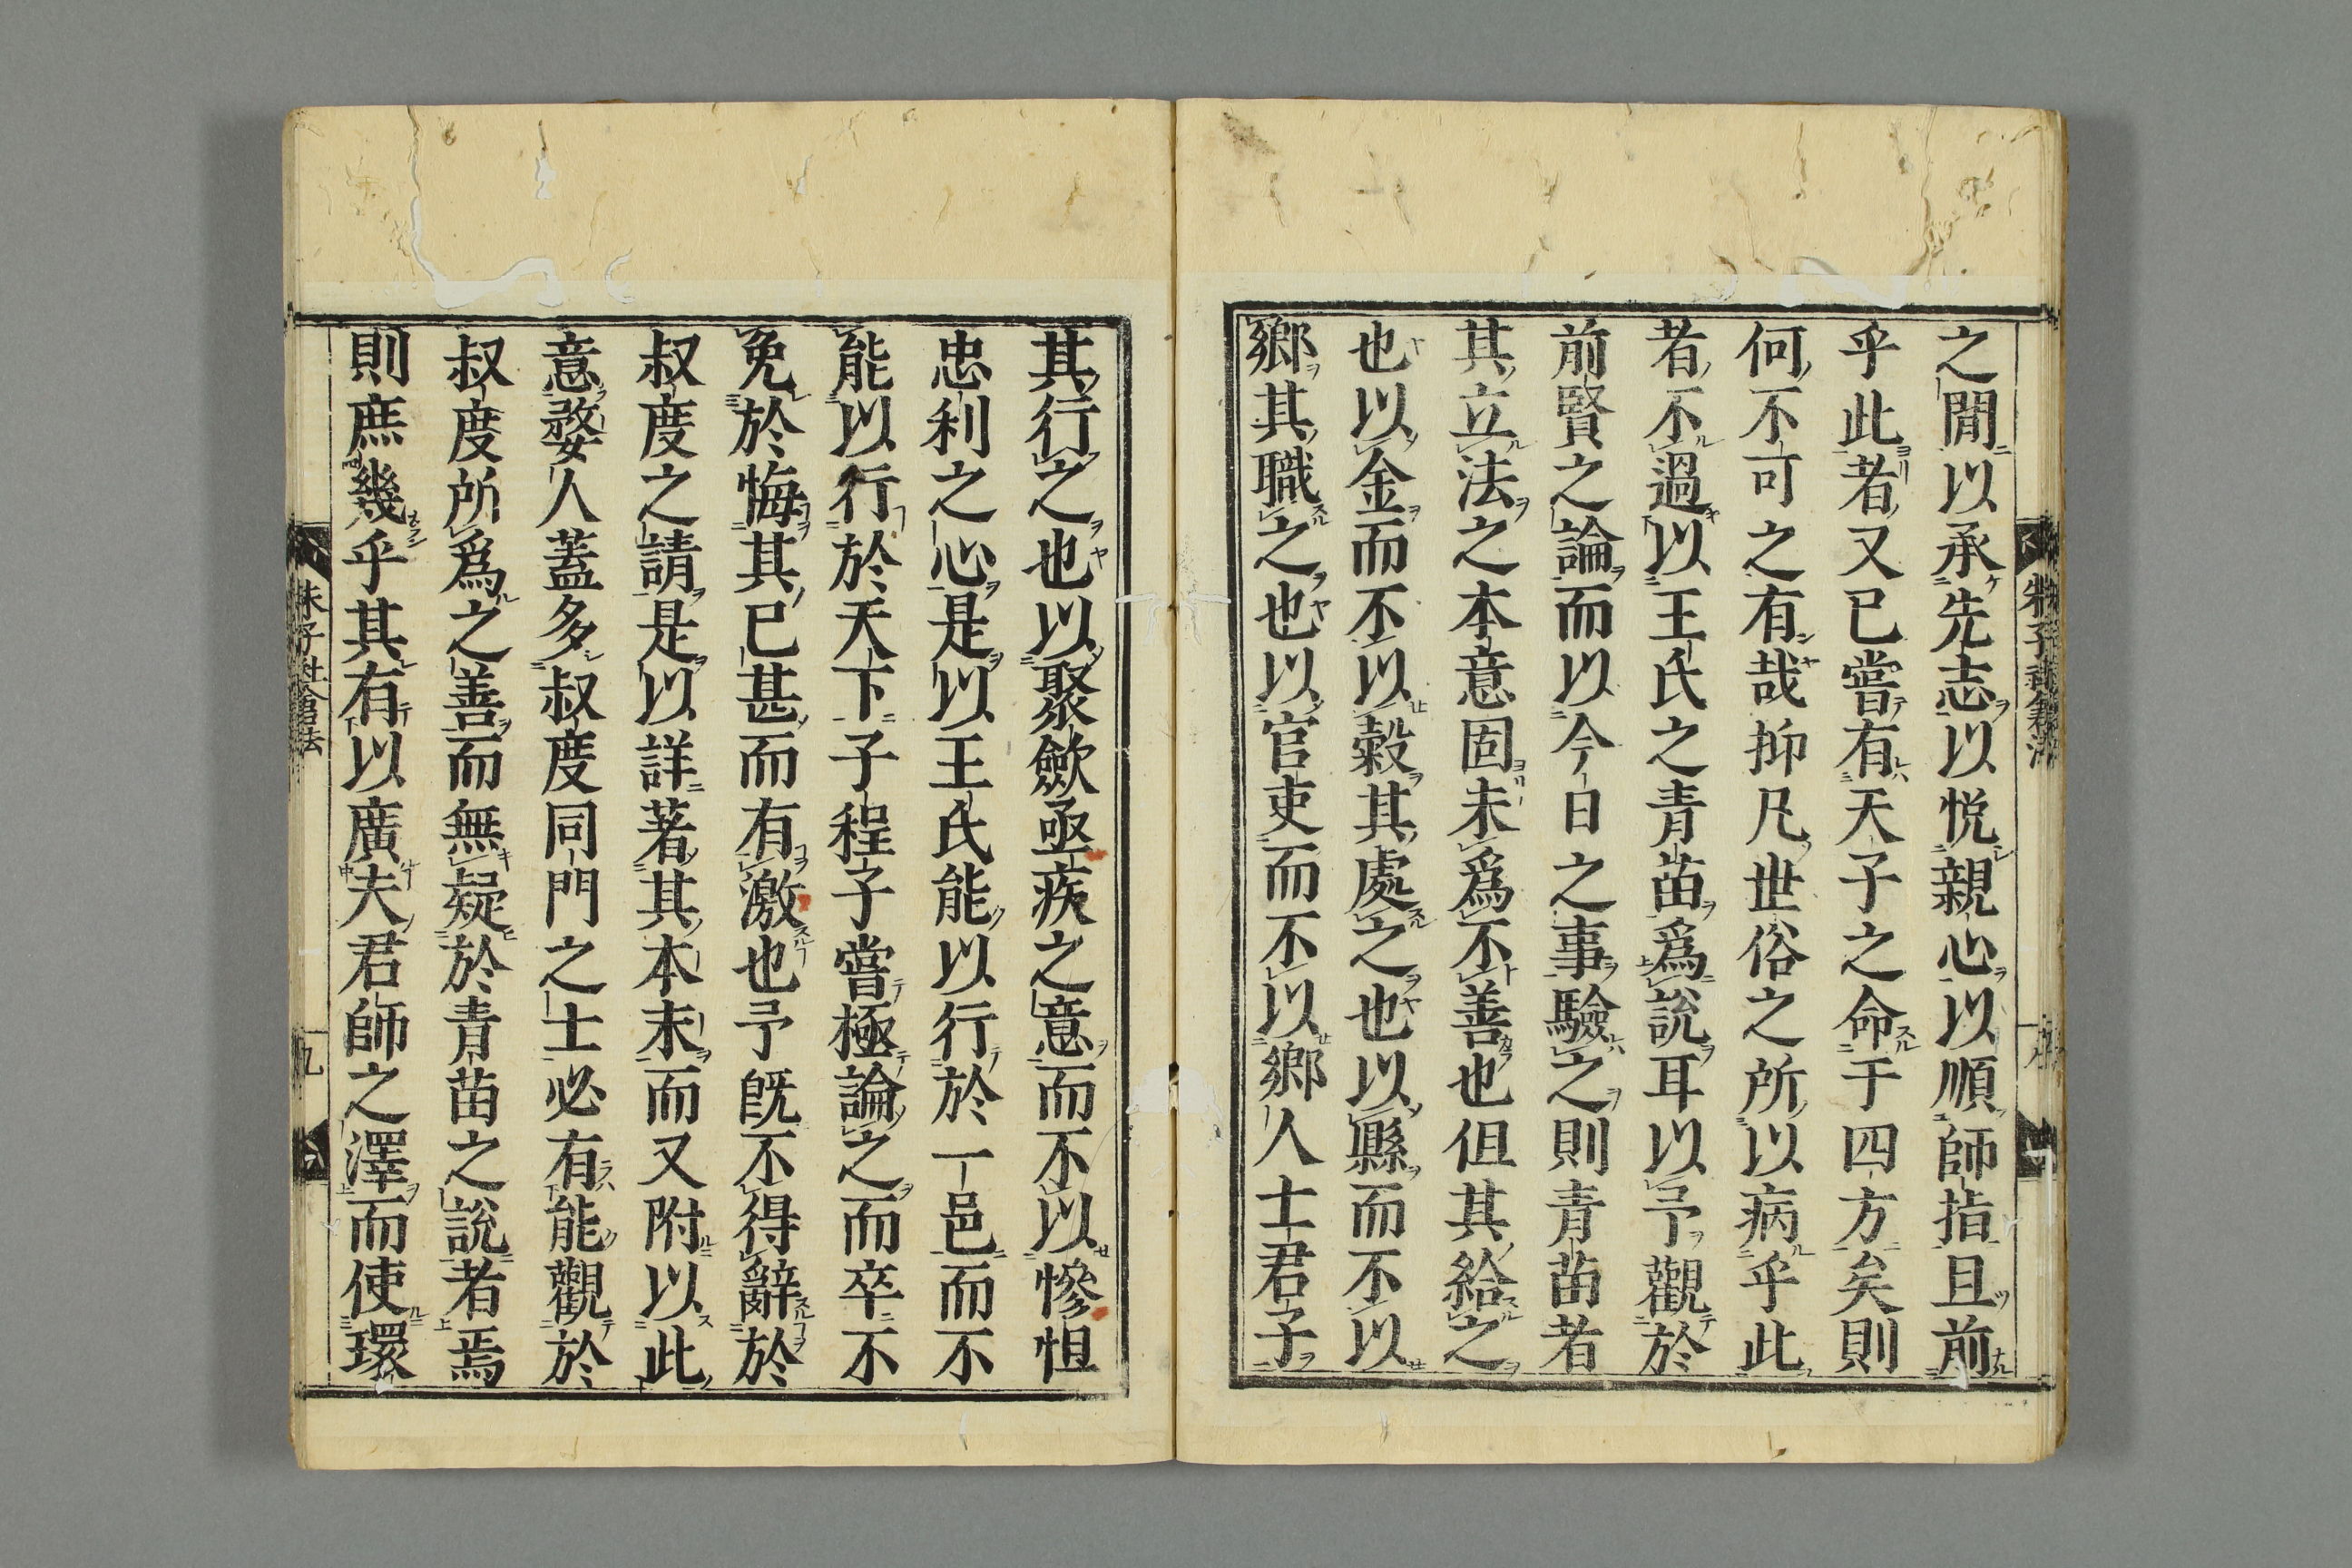 之閒以承先志以悦親心以順師指且前
乎此者又已嘗有天子之命于四方矣則
何不可之有哉抑凡世俗之所以病乎此
者不過以王氏之青苗爲說耳以予觀於
前賢之論而以今日之事驗之則青苗者
其立法之本意固未爲不善也但其給之
也以金而不以穀其處之也以縣而不以
鄉其職之也以官吏而不以鄉人士君子
其行之也以聚歛亟疾之意而不以慘怛
忠利之心是以王氏能以行於一邑而不
能以行於天下子程子嘗極論之而卒不
免於悔其已甚而有激也予旣不得辭於
叔度之請是以詳著其本末而又附以此
意婺人蓋多叔度同門之士必有能觀於
叔度所爲之善而無疑於青苗之說者焉
則庶幾乎其有以廣夫君師之澤而使環
朱子社倉法
九